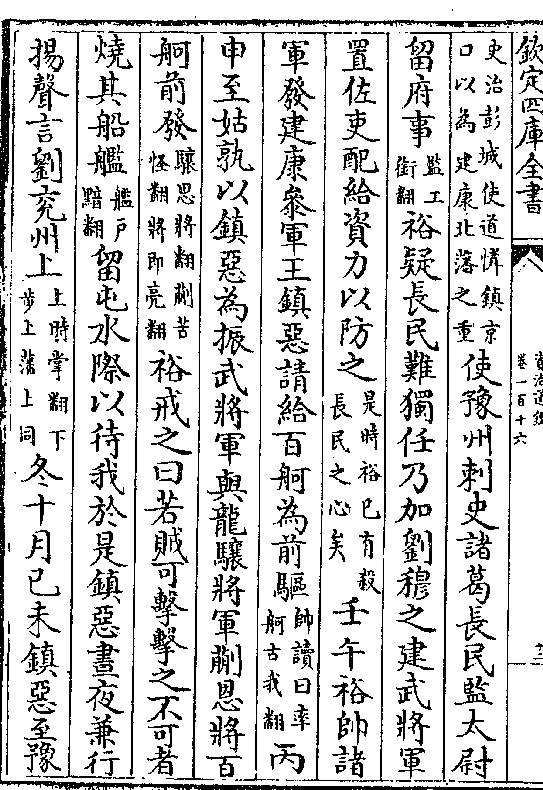 欽定四庫全書
資治通鑑
卷一百十六
史治彭城使道憐鎮京
口以為建康北藩之重
使豫州刺史諸葛長民監太尉
留府事
監工
銜翻
裕疑長民難獨任乃加劉穆之建武將軍
置佐吏配給資力以防之
是時裕已有殺
長民之心矣
壬午裕帥諸
軍發建康叅軍王鎮惡請給百舸為前驅
帥讀曰率
舸古我翻
丙
申至姑孰以鎮惡為振武將軍與龍驤將軍蒯恩將百
舸前發
驤思將翻蒯苦
怪翻將即亮翻
裕戒之曰若賊可擊擊之不可者
燒其船艦
艦户
黯翻
留屯水際以待我於是鎮惡晝夜兼行
揚聲言劉兖州上
上時掌翻下
步上藩上同
冬十月己未鎮惡至豫